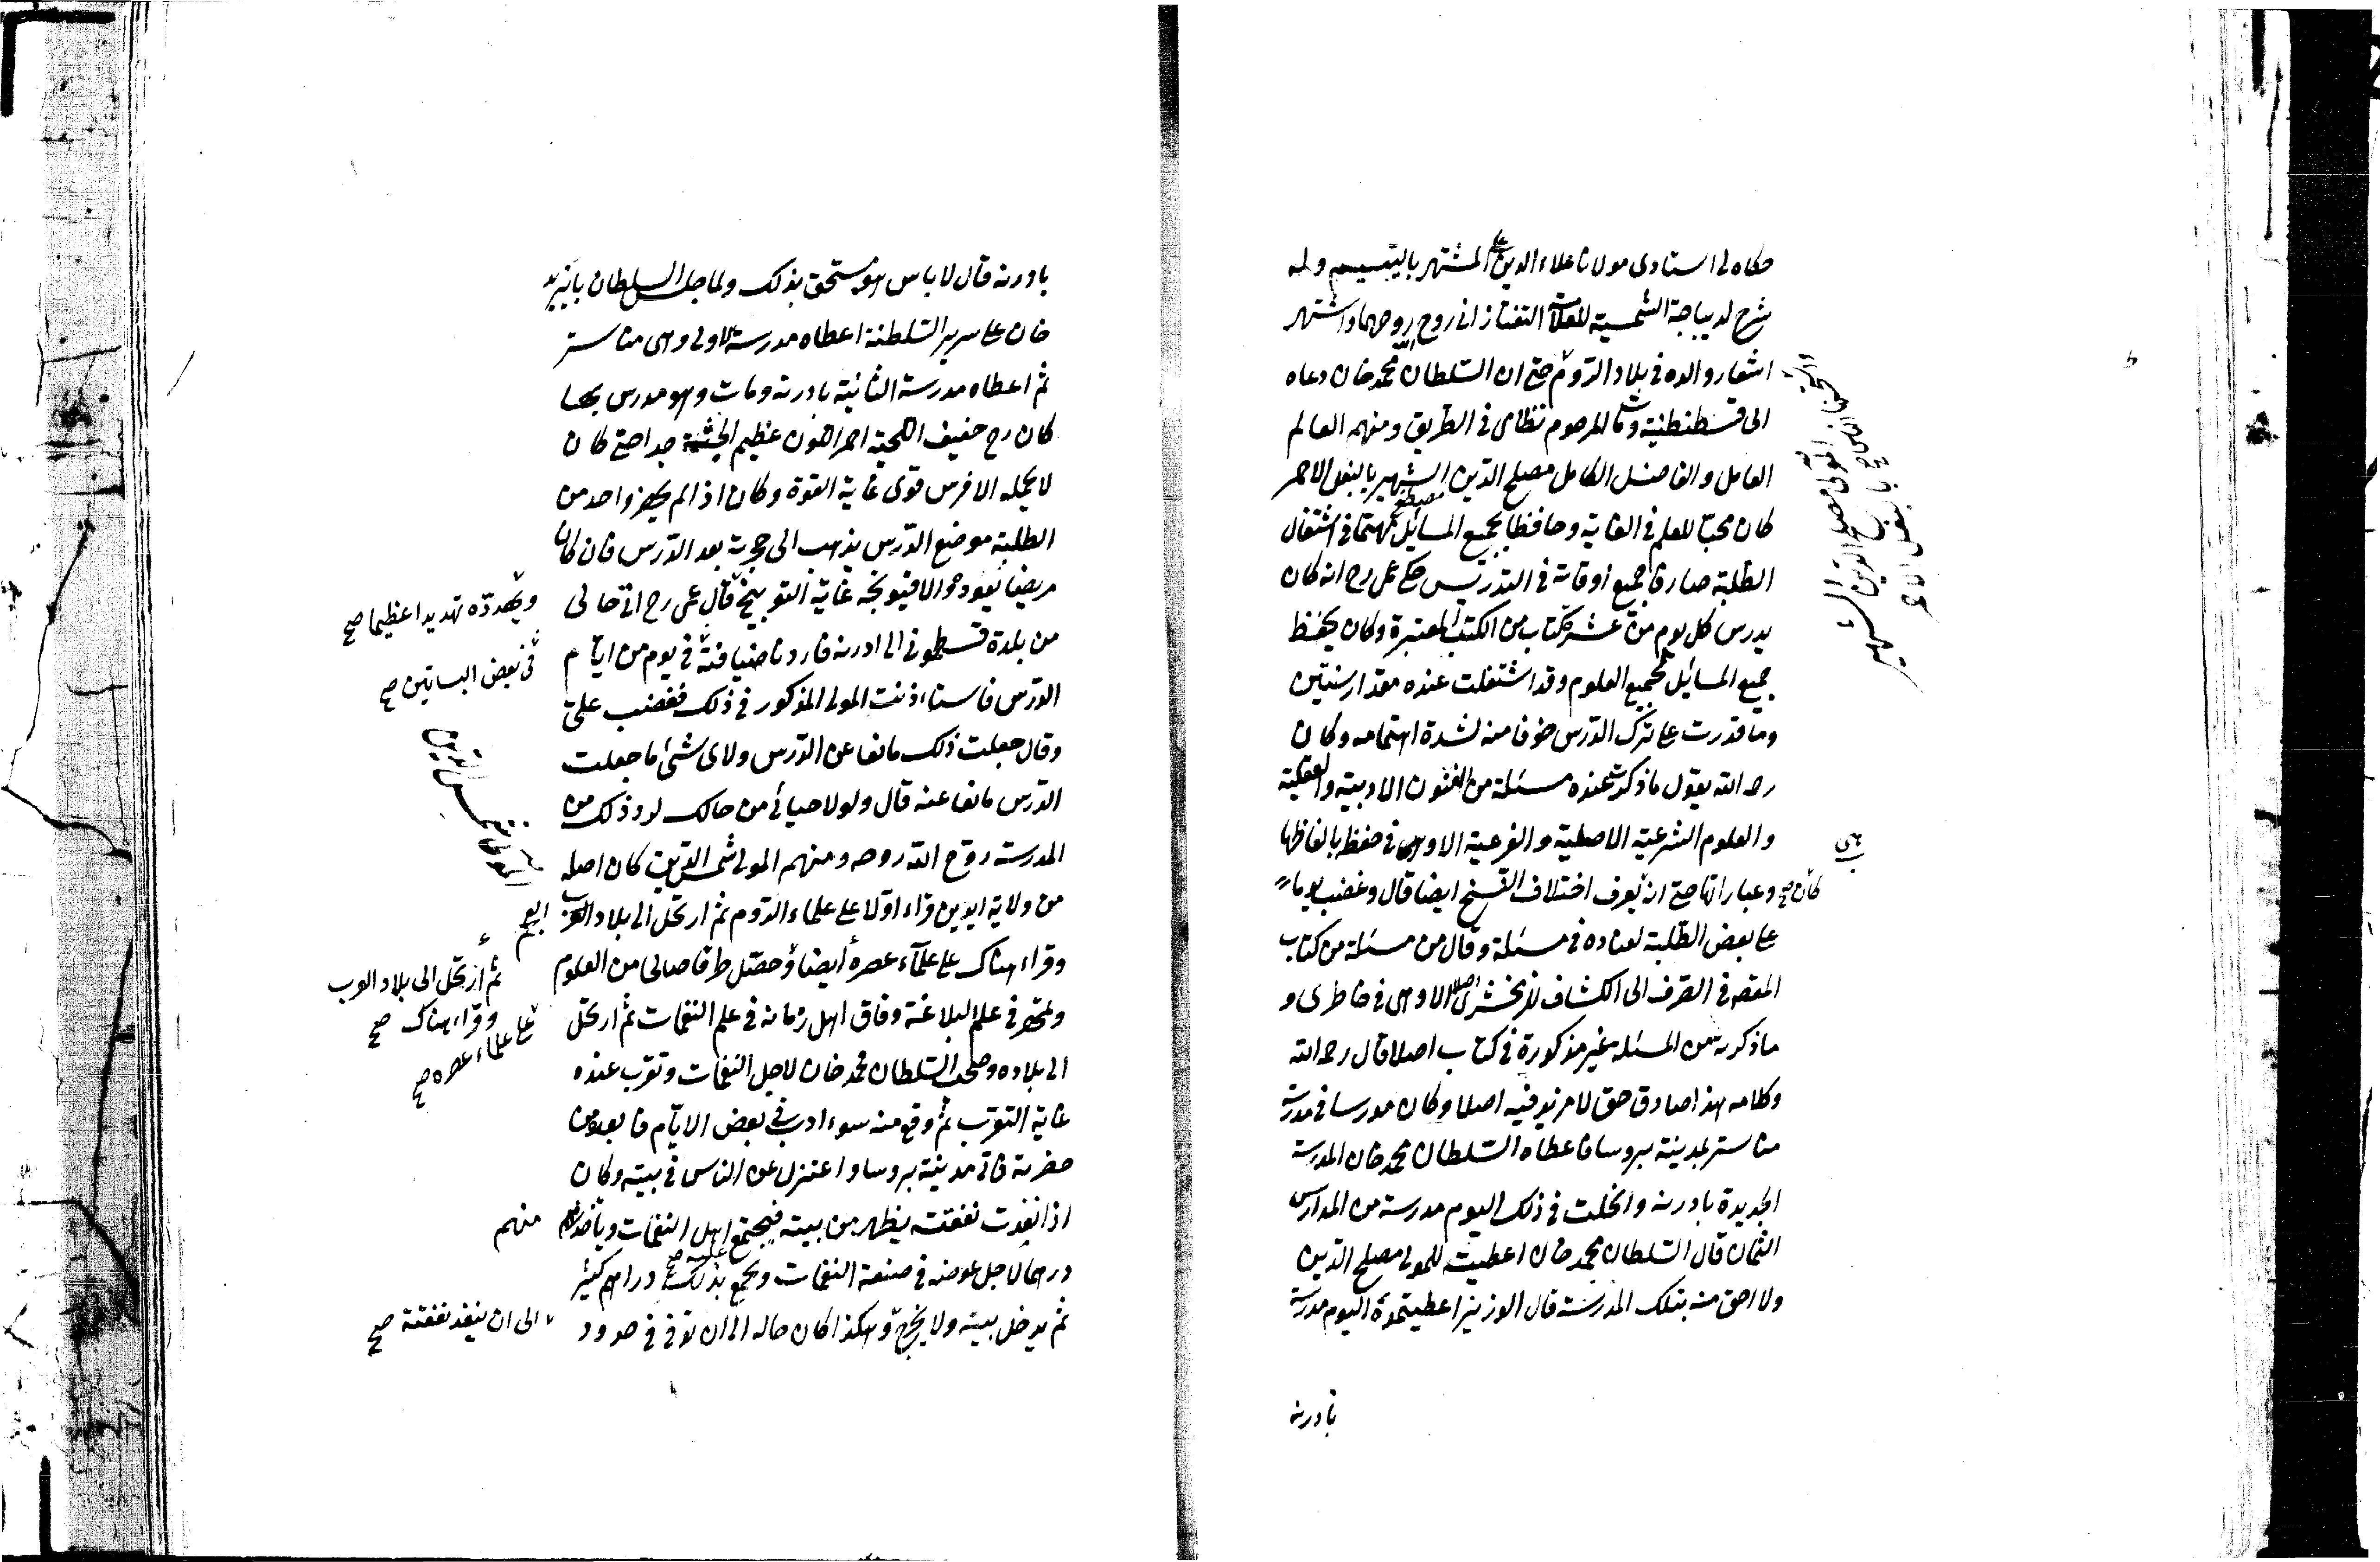 حكاه لى استادى مولانا علاء الدين على المشتهر باليتيم وله
شرح لديباجة الشمسية للعلامة التفتازانى روح الله روحهما واشتهر
اشعار والده فى بلاد الروم حتى ان السلطان محمد خان دعاه
الى قسطنطنية ومات المرحوم نظامى فى الطريق ومنهم العالم
العامل والفاضل الكامل مصلح الدين مصطفى الشهير بالبغل الاحمر
كان محبا للعلم فى الغاية وحافظا لجميع المسائل مهتما فى اشتغال
الطلبة صارفا جميع اوقاته فى التدريس حكى عمى رح انه كان
يدرس كل يوم من عشرة كتاب من الكتب المعتبرة وكان يحفظ
جميع المسائل لجميع العلوم وقد اشتغلت عنده مقدار سنتين
وما قدرت على ترك الدرس خوفا منه لشدة اهتمامه وكان
رحمه الله يقول ما ذكرت عنده مسئلة من الفنون الادبية والعقلية
والعلوم الشرعية الاصلية والفرعية الا وهى فى حفظه بالفاظها
هى
وعباراتها حتى انه كان يعرف اختلاف النسخ ايضا قال وغضب يوما
كان صح
على بعض الطلبة لعناده فى مسئلة وقال من مسئلة من كتاب
المقصود فى الصرف الى الكشاف للزمخشرى اصلا الا وهى فى خاطرى و
ما ذكرته من المسئلة غير مذكورة فى كتاب اصلا قال رحمه الله
وكلامه هذا صادق حق لا مزيد فيه اصلا وكان مدرسا فى مدرسة
مناستر بمدينة بروسا فاعطاه السلطان محمد خان المدرسة
الجديدة بادرنه وانحلت فى ذلك اليوم مدرسة من المدارس
الثمان قال السلطان محمد خان اعطيت للمولى مصلح الدين
ولا احق منه بتلك المدرسة قال الوزير اعطيتموه اليوم مدرسة
بادرنه
بادرنه قال لا باس هو مستحق بذلك ولما جلس السلطان بايزيد
خان على سرير السلطنة اعطاه مدرسة الاولى وهى مناستر
ثم اعطاه مدرسة الثانية بادرنه ومات وهو مدرس بها
كان رح خفيف اللحية احمر اللون عظيم الجثة جدا حتى كان
لا يحمله الا فرس قوى غاية القوة وكان اذا لم يحضر واحد من
الطلبة موضع الدرس يذهب الى حجرته بعد الدرس فان كان
مريضا يعوده والا فيوبخه غاية التوبيخ قال عمى رح اتى خالى
ويهدده تهديدا عظيما صح
من بلدة قسطمونى الى ادرنه فاردنا ضيافته فى يوم من ايام
فى بعض البساتين صح
الدرس فاستاءذنت المولى المذكور فى ذلك فغضب على
وقال جعلت ذلك مانعا عن الدرس ولاى شئ ما جعلت
الدرس مانعا عنه قال ولولا حيائى من خالك لرد ذلك من
المدرسة روح الله روحه ومنهم المولى شمس الدين كان اصله
من ولاية ايدين قراء اولا على علماء الروم ثم ارتحل الى بلاد العرب
العجم
وقراء هناك على علماء عصره ايضا وحصل طرفا صالحا من العلوم
ثم ارتحل الى بلاد العرب
وقراء هناك صح
على علماء عصره صح
وتمهر فى علم البلاغة وفاق اهل زمانه فى علم النغمات ثم ارتحل
الى بلاده وصحب السلطان محمد خان لاجل النغمات وتقرب عنده
غاية التقرب ثم وقع منه سوء ادب فى بعض الايام فابعده من
حضرته فاتى مدينة بروسا واعتزل عن الناس فى بيته وكان
اذا نفدت نفقته يظهر من بيته فيجتمع عليه اهل النغمات وياخذ
منهم
درهما لاجل عوضه فى صنعة النغمات ويجمع بذلك دراهم كثير
ثم يدخل بيته ولا يخرج وهكذا كان حاله الى ان توفى فى حدود
الى ان ينفد نفقته صح